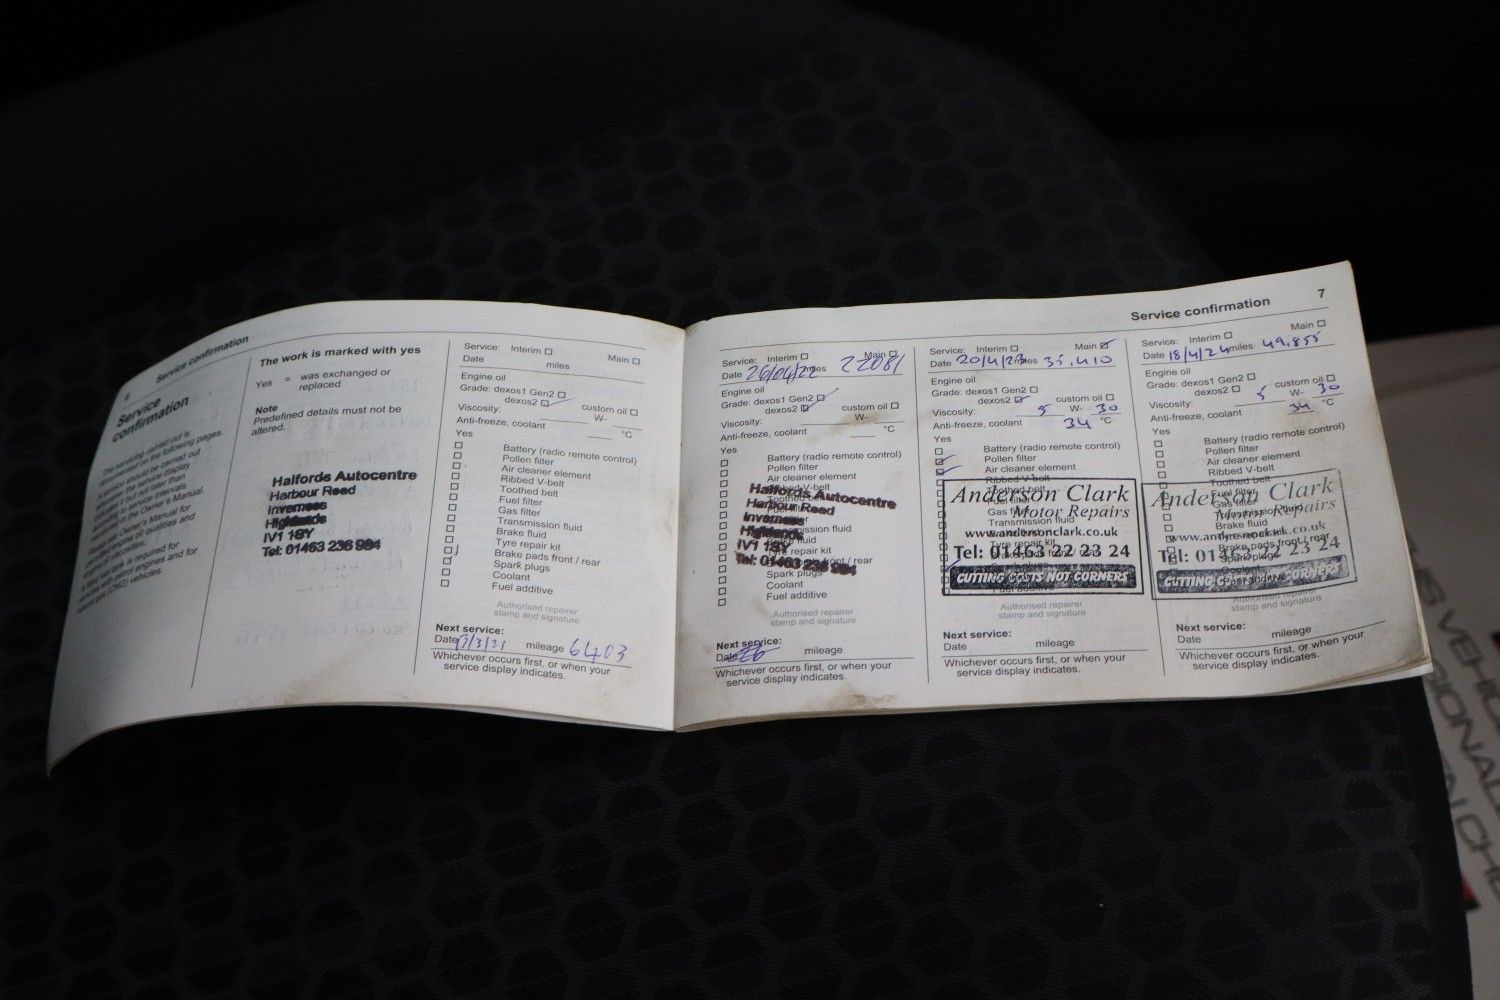 6
Service confirmation
Service
confirmation
The servicing carried out is
The work is marked with yes
Yes = was exchanged or
replaced
Note
Predefined details must not be
altered.
Halfords Autocentre
Harbour Road
Inverness
Highlands
IV1 1SY
Tel: 01463 236 984
Service: Interim Main
Date miles
Engine oil
Grade: dexos1 Gen2
dexos2 custom oil
Viscosity: W-
Anti-freeze, coolant °C
Yes
Battery (radio remote control)
Pollen filter
Air cleaner element
Ribbed V-belt
Toothed belt
Fuel filter
Gas filter
Transmission fluid
Brake fluid
Tyre repair kit
Brake pads front / rear
Spark plugs
Coolant
Fuel additive
Authorised repairer
stamp and signature
Next service:
Date /3/21 mileage 6403
Whichever occurs first, or when your
service display indicates.
Service confirmation 7
Service: Interim Main
Date 26/04/22 miles 22081
Engine oil
Grade: dexos1 Gen2
dexos2 custom oil
Viscosity: W-
Anti-freeze, coolant °C
Yes
Battery (radio remote control)
Pollen filter
Air cleaner element
Halfords Autocentre
Harbour Road
Inverness
Highlands
IV1 1SY
Tel: 01463 236 984
Spark plugs
Coolant
Fuel additive
Authorised repairer
stamp and signature
Next service:
Date mileage
Whichever occurs first, or when your
service display indicates.
Service: Interim Main
Date 20/4/23 miles 35.410
Engine oil
Grade: dexos1 Gen2
dexos2 custom oil
Viscosity: 5 W- 30
Anti-freeze, coolant 34 °C
Yes
Battery (radio remote control)
Pollen filter
Air cleaner element
Ribbed V-belt
Anderson Clark
Motor Repairs
www.andersonclark.co.uk
Tel: 01463 22 23 24
CUTTING COSTS NOT CORNERS
Fuel additive
Authorised repairer
stamp and signature
Next service:
Date mileage
Whichever occurs first, or when your
service display indicates.
Service: Interim Main
Date 18/4/24 miles 49.855
Engine oil
Grade: dexos1 Gen2
dexos2 custom oil
Viscosity: 5 W- 30
Anti-freeze, coolant 34 °C
Yes
Battery (radio remote control)
Pollen filter
Air cleaner element
Ribbed V-belt
Anderson Clark
Motor Repairs
www.andersonclark.co.uk
Tel: 01463 22 23 24
CUTTING COSTS NOT CORNERS
Fuel additive
Authorised repairer
stamp and signature
Next service:
Date mileage
Whichever occurs first, or when your
service display indicates.